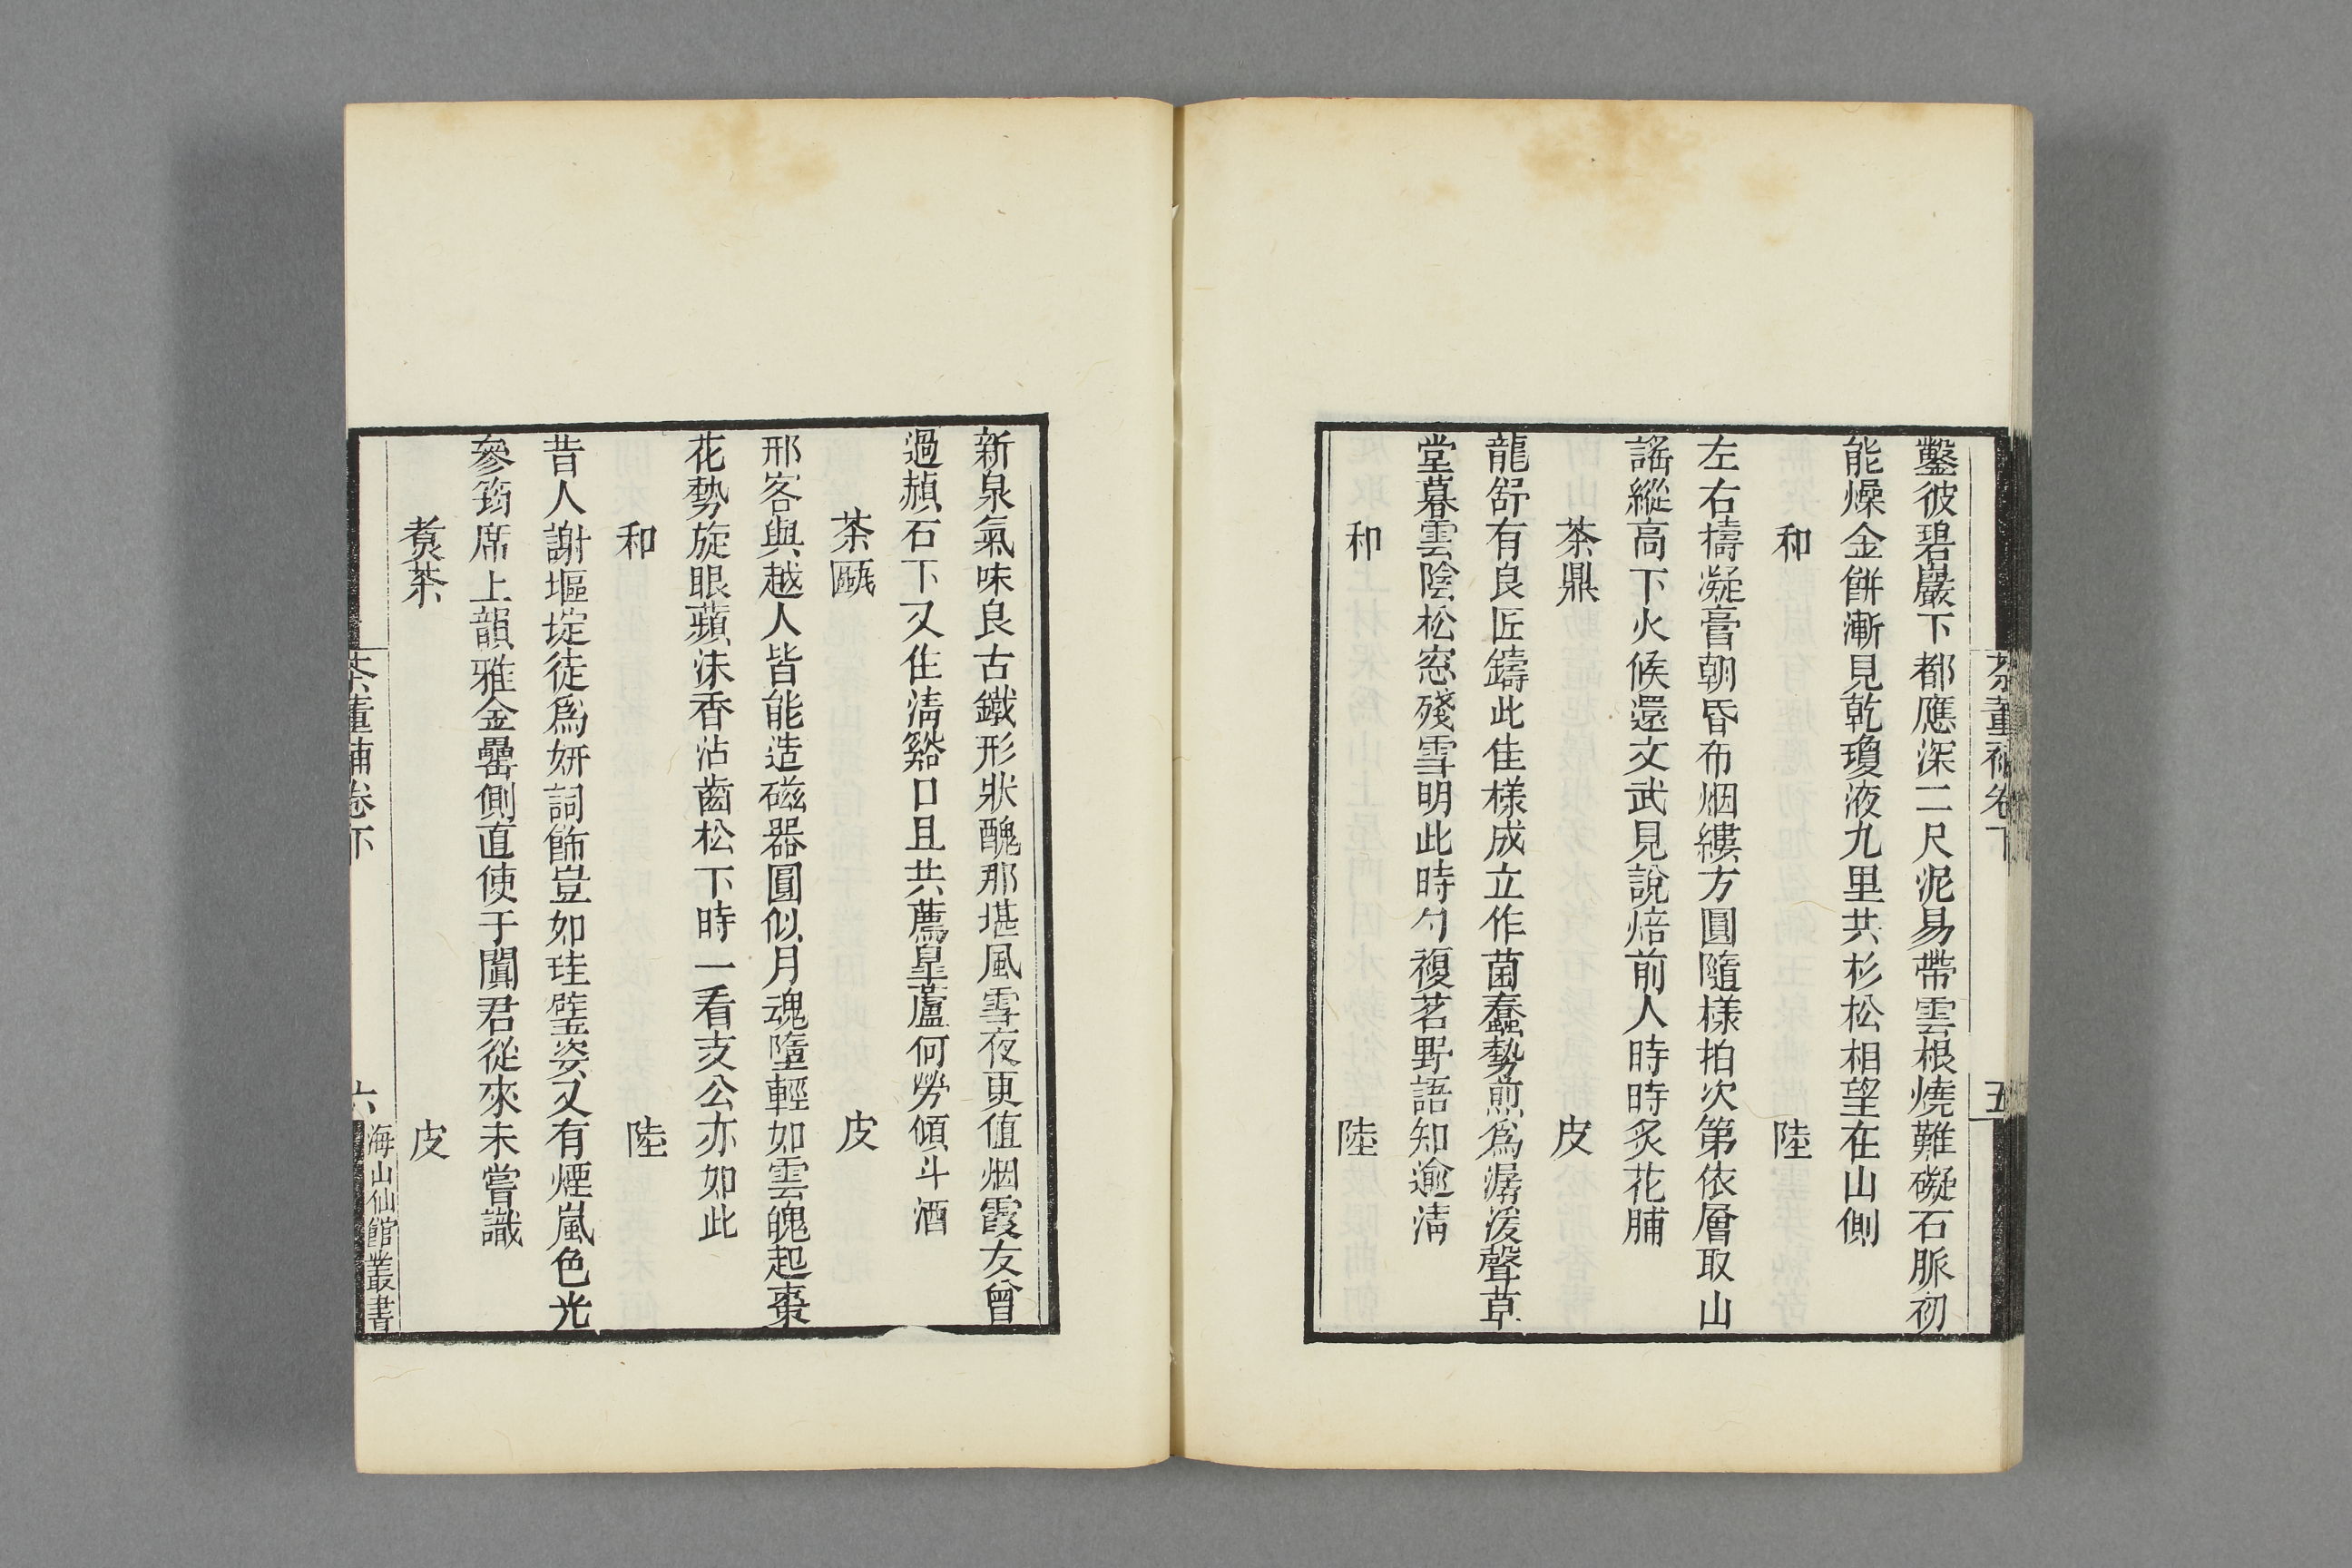 茶董補卷下
五
鑿彼碧巖下都應深二尺泥易帶雲根燒難礙石脈初
能燥金餅漸見乾瓊液九里共杉松相望在山側
和 陸
左右擣凝膏朝昏布烟縷方圓隨樣拍次第依層取山
謠縱高下火候還文武見說焙前人時時炙花脯
茶鼎 皮
龍舒有良匠鑄此佳樣成立作菌蠢勢煎爲潺湲聲草
堂暮雲陰松窓殘雪明此時勺複茗野語知逾淸
和 陸
新泉氣味良古鐵形狀醜那堪風雪夜更値烟霞友曾
過赬石下又住淸谿口且共薦皐蘆何勞傾斗酒
茶甌 皮
邢客與越人皆能造磁器圓似月魂墮輕如雲魄起棗
花勢旋眼蘋沫香沾齒松下時一看支公亦如此
和 陸
昔人謝塸埞徒爲妍詞飾豈如珪璧姿又有煙嵐色光
參筠席上韻雅金罍側直使于闐君從來未嘗識
煑茶 皮
茶董補卷下
六
海山仙館叢書